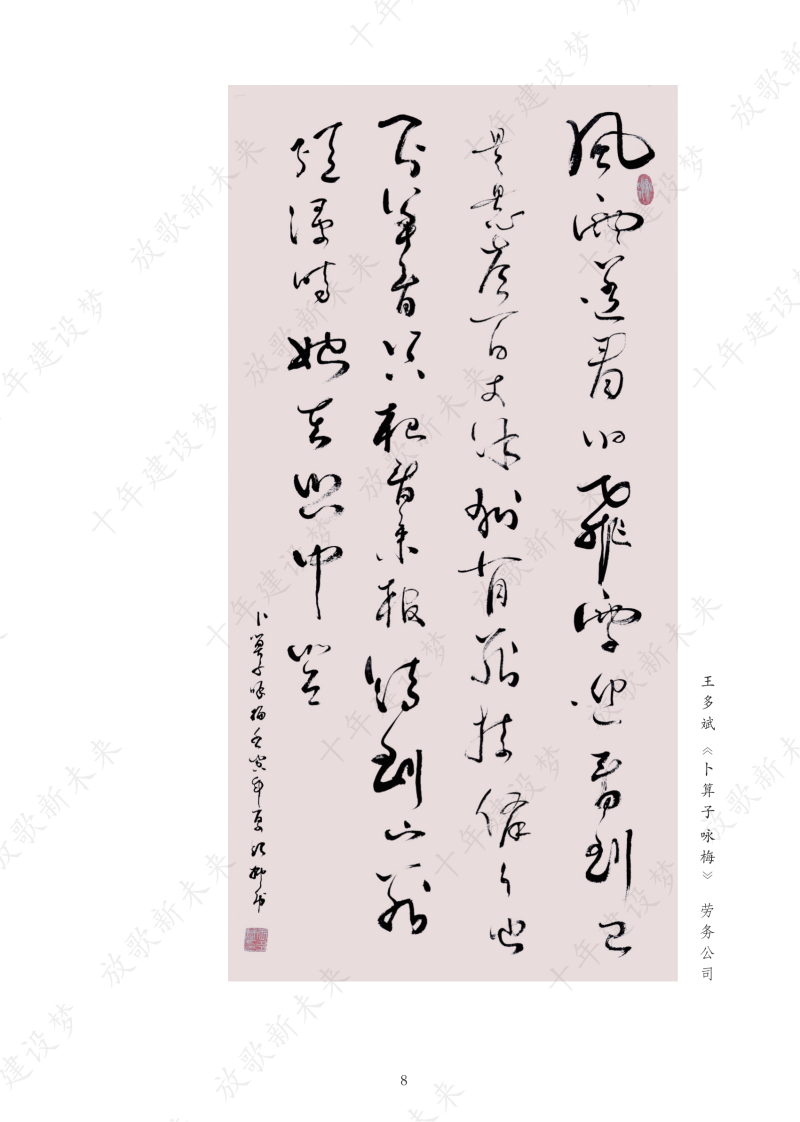 風雨送春归飛雪迎春到已
是悬崖百丈冰犹有花枝俏々也
不争春只把春来报待到山花
烂漫时她在丛中笑
卜算子咏梅壬寅年夏 书
王多斌《卜算子咏梅》 劳务公司
8
十年建设梦 放歌新未来